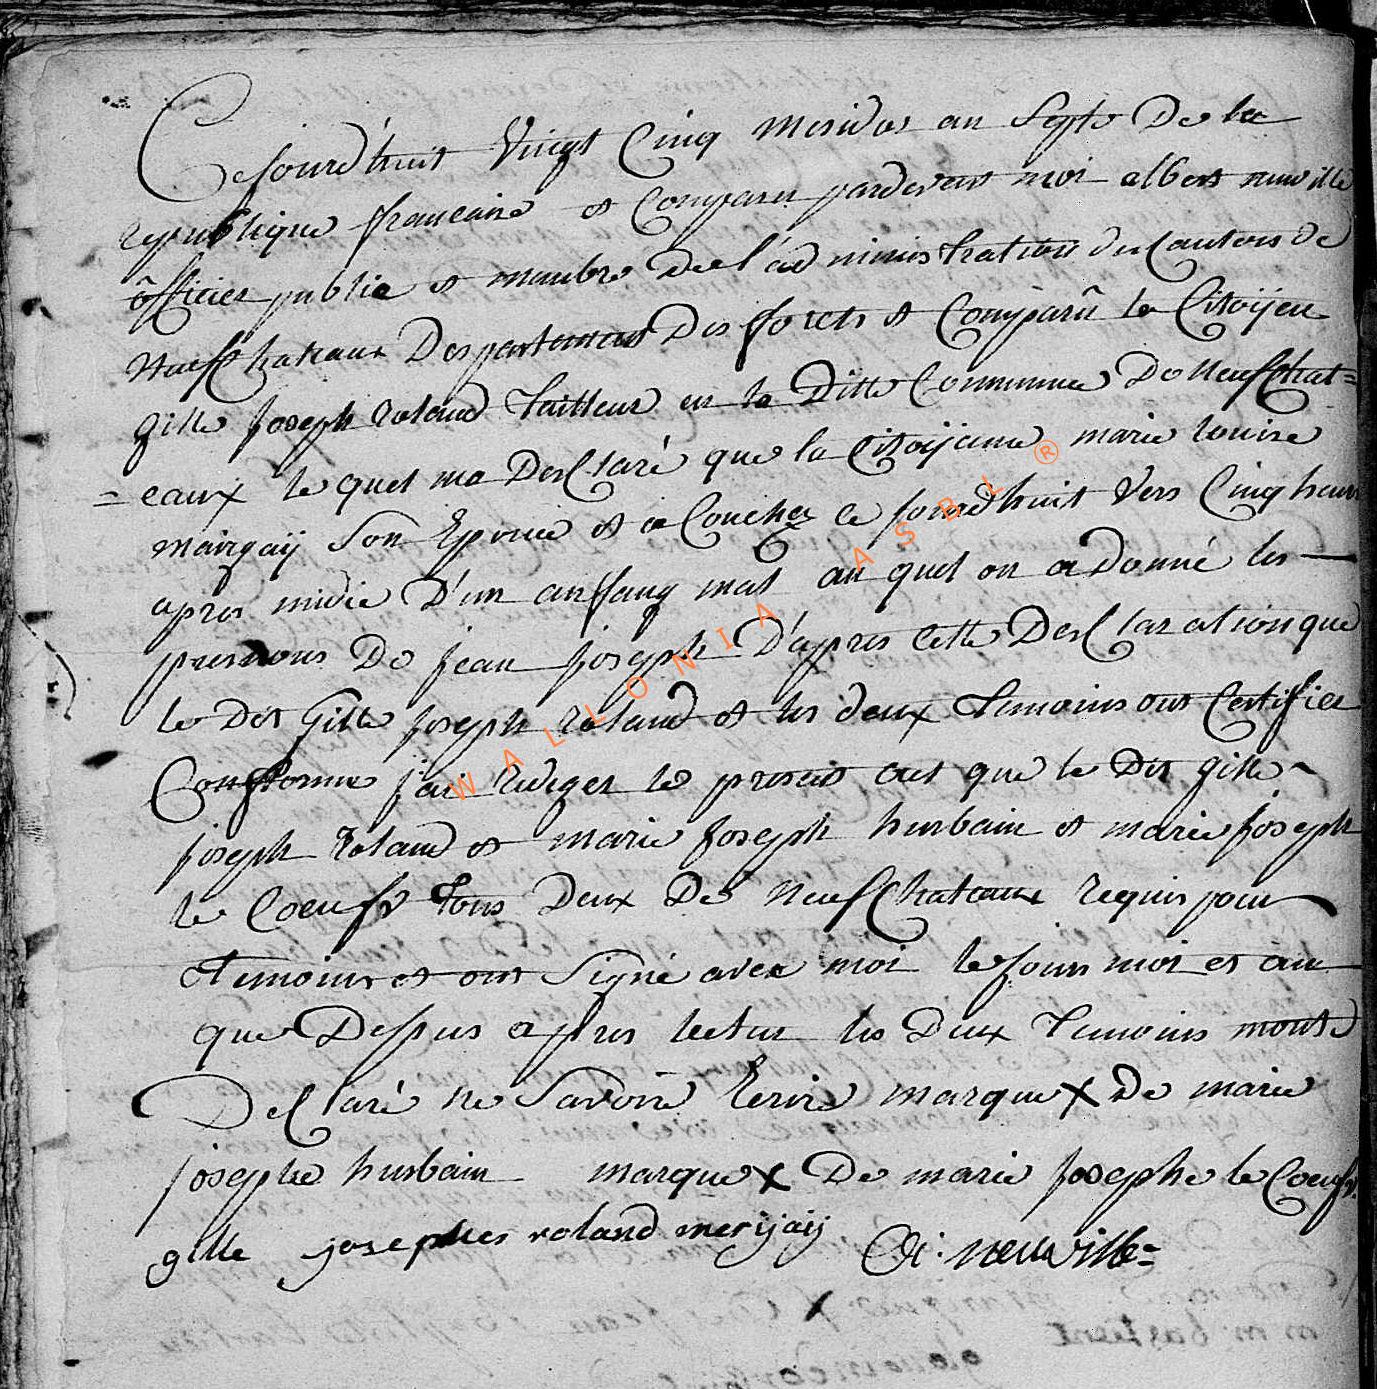 Cejourd'huit Vingt Cinq mesidor an Septe De la
republique francaise et Comparu pardevant moi albert neuville
officier public et membre De l'administration du Cantons de
Neufchateaux Despartement Des forets et Comparû le Citoÿen
gille joseph roland tailleur en la Ditte Commune De Neufchat=
=eaux le quel ma Desclaré que la Citoÿenne marie louise
margaÿ Son Epouse et a Couchez ce jourdhuit Vers Cinq heur
apres midie D'un anffang mal au quel on a donné les
prenons De jean joseph D'apres cette Desclaration que
le Dit Gille joseph roland et les deux temoins ont Certifier
Conforme j'ai rediger le present act que le Dit gille
joseph roland et marie joseph hurbain et marie joseph
le Coeuf tous Deux De Neufchateaux requis pour
temoins et ont Signé avec moi le jour moi et an
que Dessus apres lectur les Deux temoins mont
Desclaré ne Savoire Ecrire marque X De marie
josephe hurbain marque X De marie josephe le Coeuf
gille josephes roland merijaij A: neuville=
WALLONIA ASBL ®